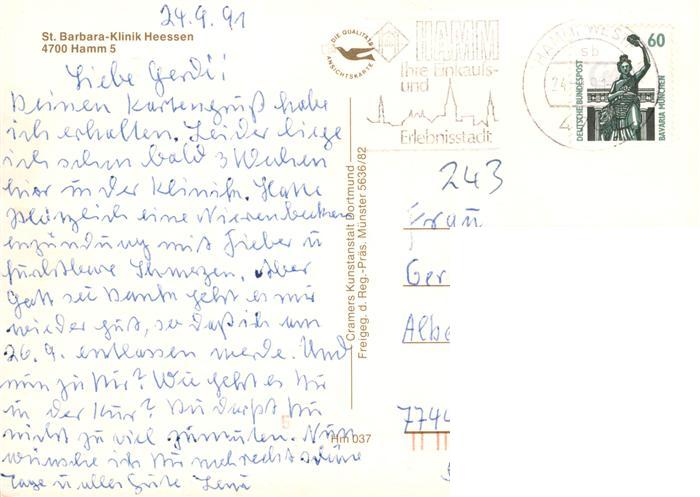 24.9.91
St. Barbara-Klinik Heessen
4700 Hamm 5
Liebe Gerdi!
Deinen Kartengruß habe
ich erhalten. Leider liege
ich schon bald 3 Wochen
hier in der Klinik. Hatte
plötzlich eine Nierenbecken
enzündung mit Fieber u
furchtbare Schmerzen. Aber
Gott sei Danke geht es mir
wieder gut, so daß ich am
26.9. entlassen werde. Und
nun zu Dir? Wie geht es Dir
in der Kur? Du darfst Dir
nicht zu viel zumuten. Nun
wünsche ich Dir noch recht schöne
Tage u alles Gute
DIE QUALITÄTS
ANSICHTSKARTE
HAMM
Ihre Einkaufs-
und
Erlebnisstadt
sb
24
4
60
DEUTSCHE BUNDESPOST
BAVARIA MÜNCHEN
Cramers Kunstanstalt Dortmund
Freigeg. d. Reg.-Präs. Münster 5636/82
Hm 037
243
Frau
Ger
Albe
7744